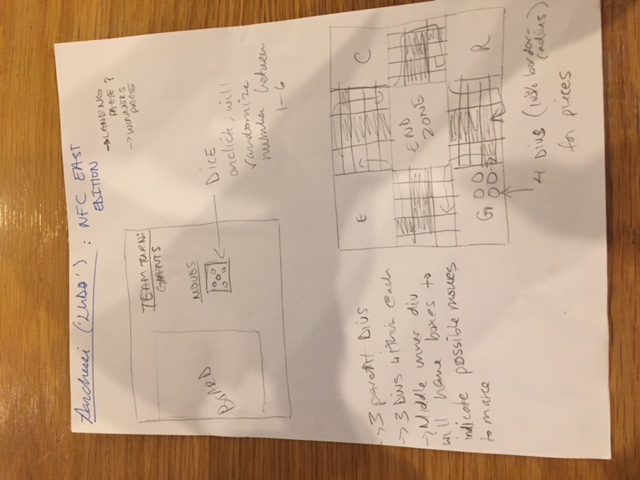 Parchessi ('LUDO') : NFC EAST
EDITION
→ LANDING
PAGE ?
→ WINNERS
PAGE
TEAM TURN:
GIANTS
MOVES
BOARD
DICE
onclick, will
randomize
number between
1-6
→ 3 parent Divs
→ 3 Divs within each
→ Middle inner div
will have boxes to
indicate possible moves
to make
E
C
END
ZONE
G
R
4 Divs ( border-
radius)
for pieces